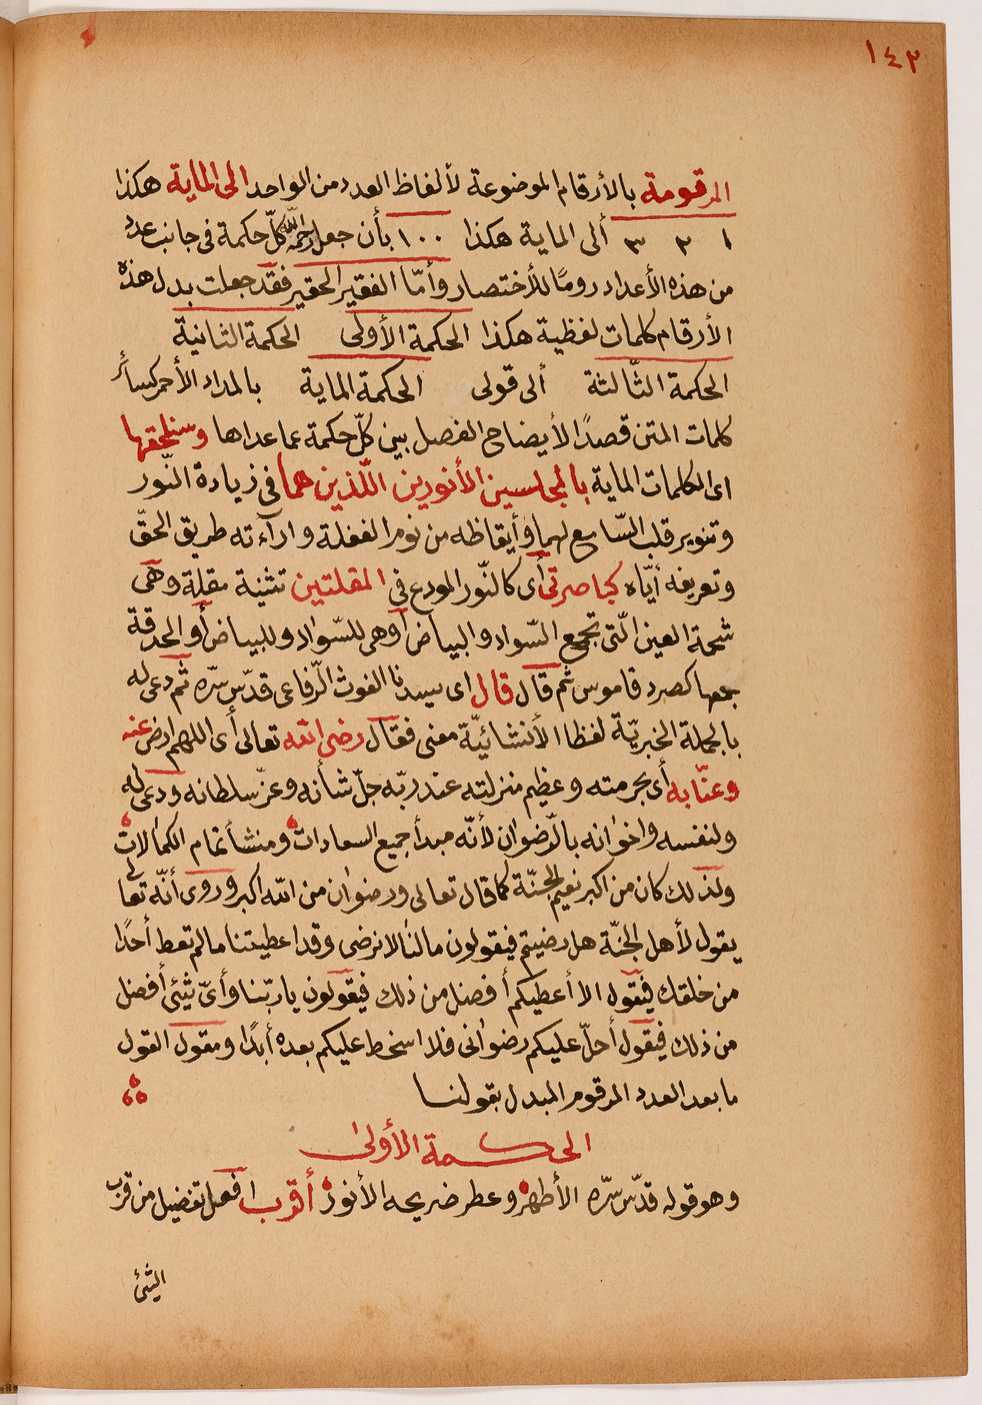 ١٤٣
المرقومة بالأرقام الموضوعة لألفاظ العدد من الواحد الى الماية هكذا
١ ٢ ٣ ألى الماية هكذا ١٠٠ بأن جعل رحمه الله كلّ حكمة فى جانب عدد
من هذه الأعداد رومًا للأختصار وأمّا الفقير الحقير فقد جعلت بدل هذه
الأرقام كلمات لفظية هكذا الحكمة الأولى الحكمة الثانية
الحكمة الثّالثة ألى قولى الحكمة الماية بالمداد الأحمر كسائر
كلمات المتن قصدًا لأيضاح الفصل بين كلّ حكمة عما عداها وسنلحقها
اى الكلمات الماية بالمجلسين الأنورين اللّذين هما فى زيادة النّور
وتنوير قلب السّامع لهما وأيقاظه من نوم الغفلة واراءته طريق الحقّ
وتعريفه أيّاه كباصرتى أى كالنّور المودع فى المقلتين تثنية مقلة وهى
شحمة العين الّتى تجمع السّواد والبياض أوهى للسّواد وللبياض أو الحدقة
جمعها كصرد قاموس ثم قال قال اى سيدنا الغوث الرّفاعى قدّس سرّه ثم دعى له
بالجملة الخبريّة لفظا الأنشائيّة معنى فقال رضى الله تعالى أى اللهم ارض عنه
وعنّا به أى بحرمته وعظيم منزلته عند ربّه جلّ شأنه وعزّ سلطانه ودعى له
ولنفسه واخوانه بالرّضوان لأنّه مبدأ جميع السعادات ومنشأ تمام الكمالات
ولذلك كان من اكبر نعيم الجنّة كما قال تعالى ورضوان من الله اكبر وروى أنّه تعالى
يقول لأهل الجنّة هل رضيتم فيقولون مالنا لا نرضى وقد اعطيتنا مالم تعط أحدًا
من خلقك فيقول الا أعطيكم أفضل من ذلك فيقولون ياربّنا وأىّ شئ أفضل
من ذلك فيقول أحلّ عليكم رضوانى فلا اسخط عليكم بعده أبدًا ومقول القول
ما بعد العدد المرقوم المبدل بقولنا
الحكمة الأولى
وهو قوله قدّس سرّه الأطهر وعطر ضريحه الأنور أقرب افعل تفضيل من قرب
الشئ